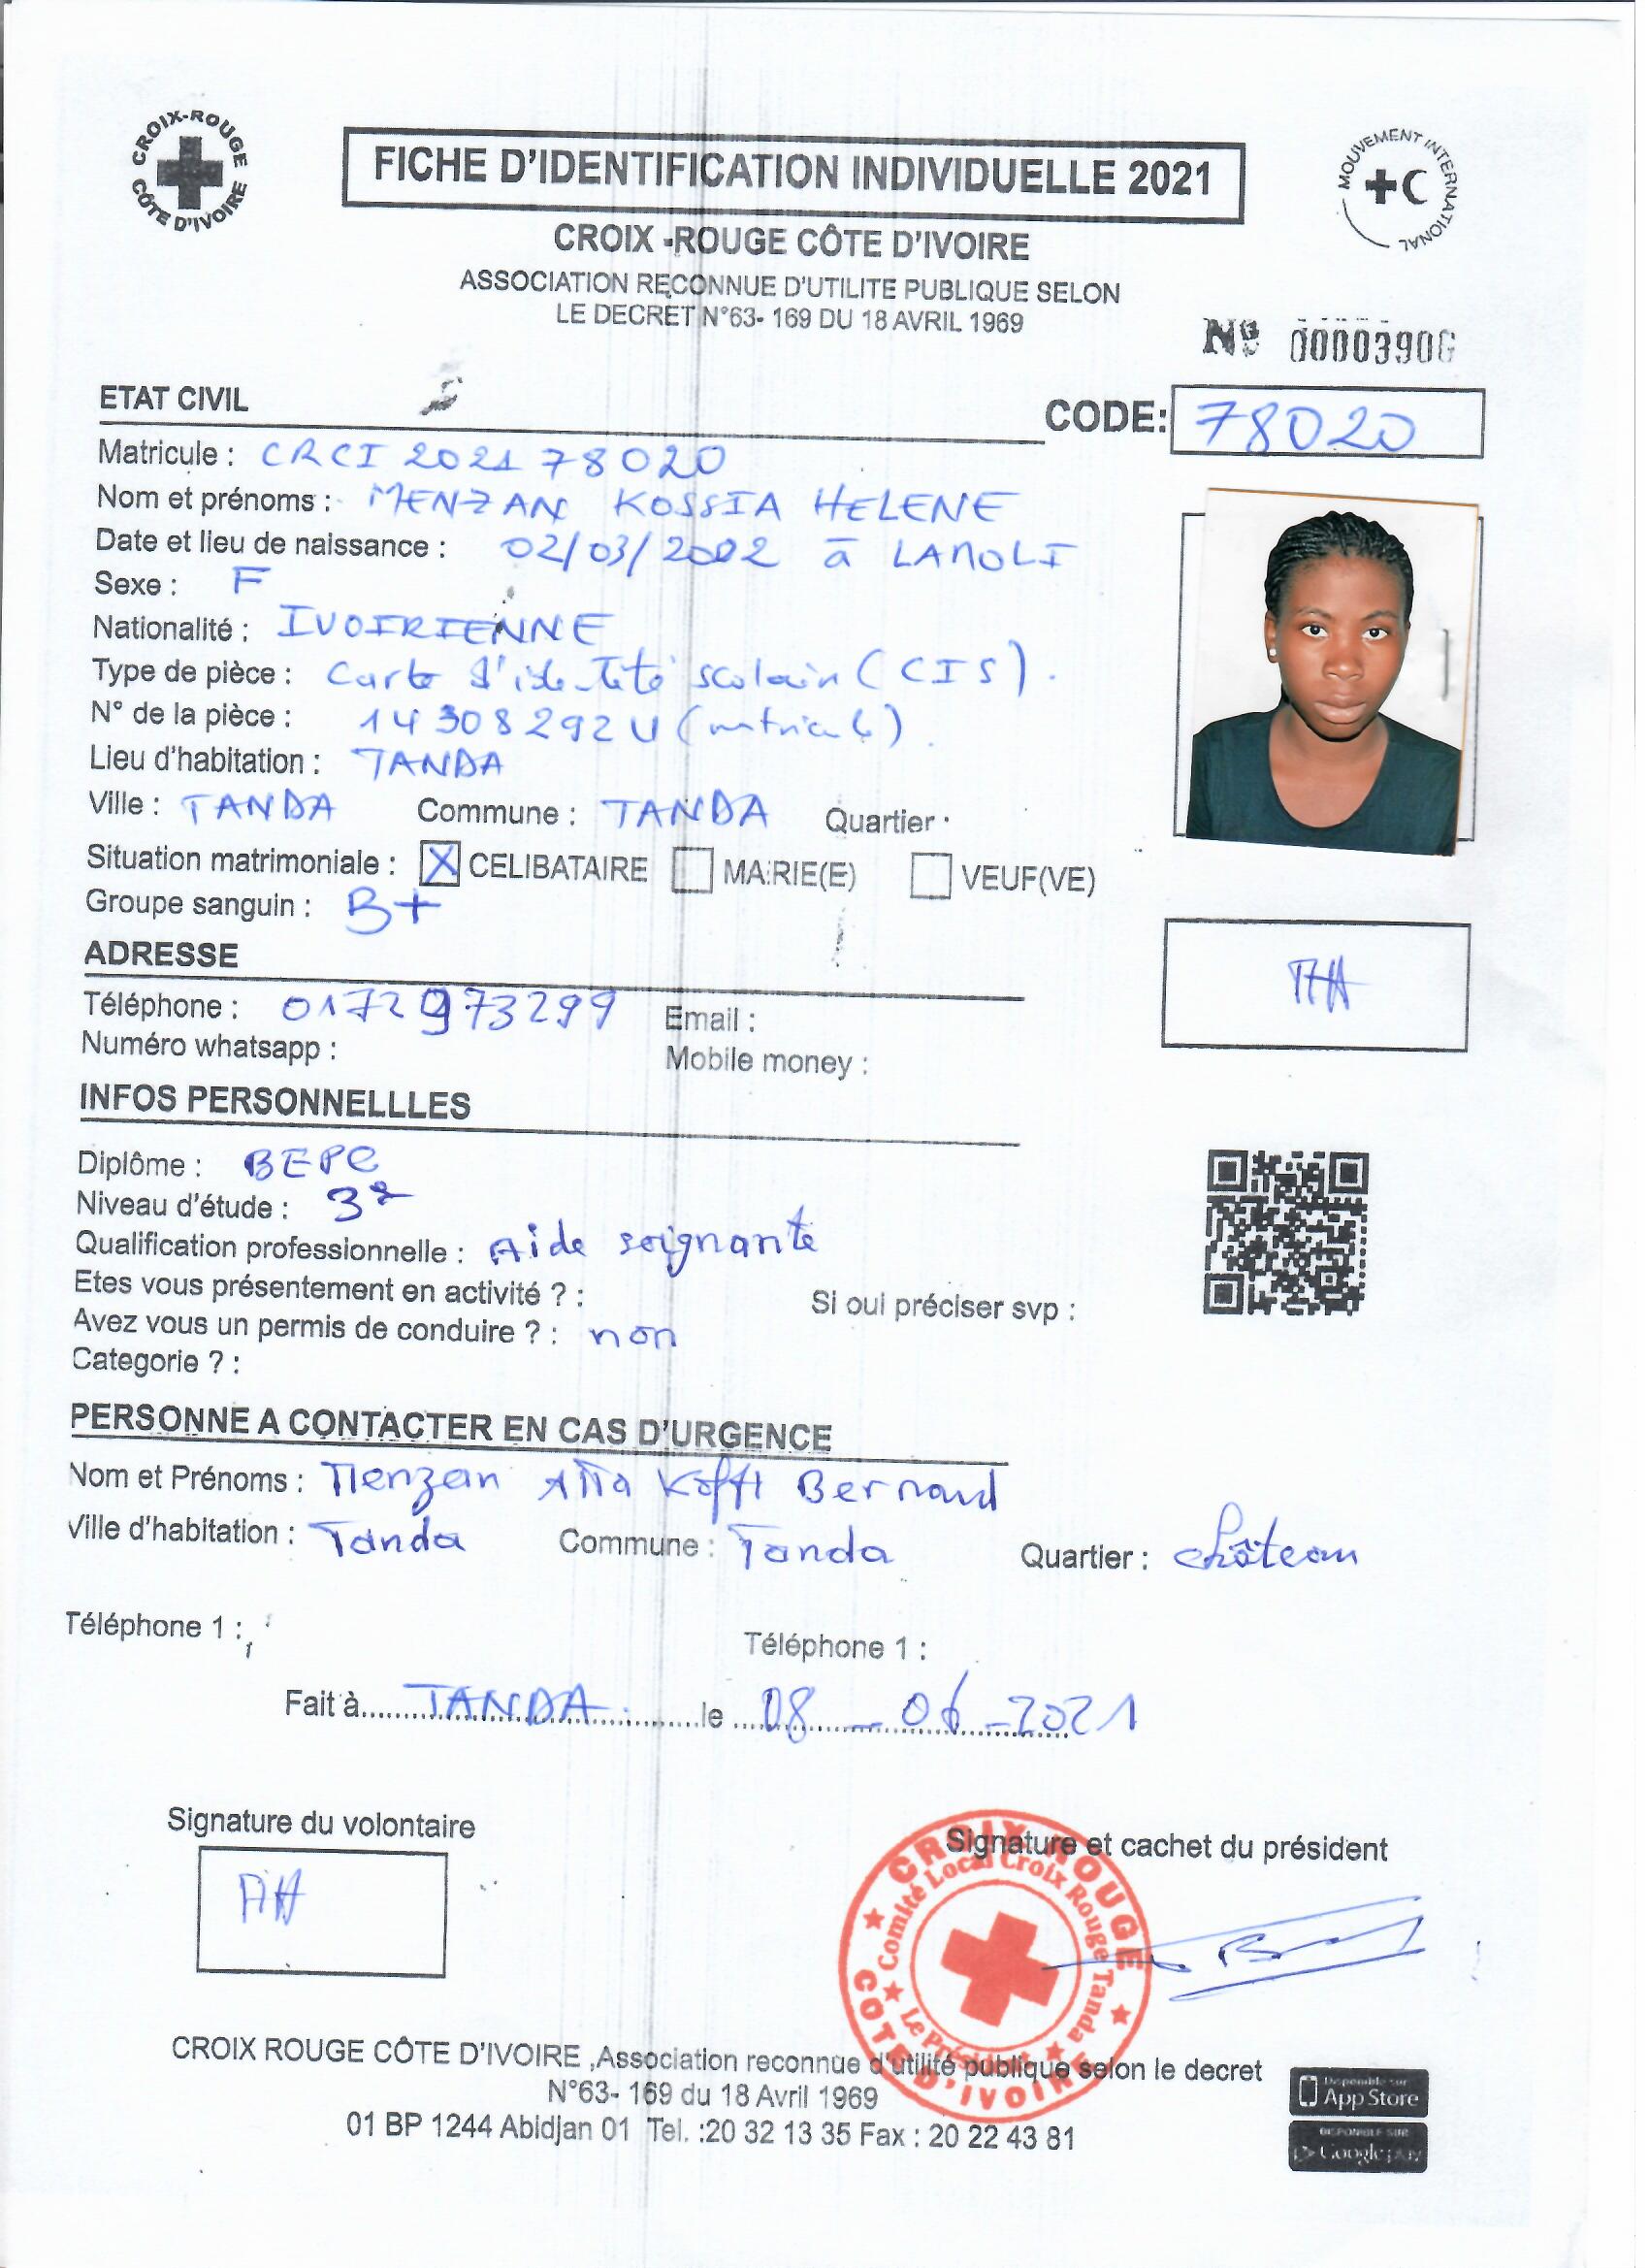 CROIX-ROUGE CÔTE D'IVOIRE
FICHE D'IDENTIFICATION INDIVIDUELLE 2021
MOUVEMENT INTERNATIONAL
CROIX -ROUGE CÔTE D'IVOIRE
ASSOCIATION RECONNUE D'UTILITE PUBLIQUE SELON
LE DECRET N°63- 169 DU 18 AVRIL 1969
Nº 00003906
ETAT CIVIL
CODE: 78020
Matricule : CRCI 2021 78020
Nom et prénoms : MENZAN KOSSIA HELENE
Date et lieu de naissance : 02/03/2002 à LAMOLI
Sexe : F
Nationalité : IVOIRIENNE
Type de pièce : Carte d'identité scolaire (CIS).
N° de la pièce : 14308292U (matricule).
Lieu d'habitation : TANDA
Ville : TANDA Commune : TANDA Quartier :
Situation matrimoniale : X CELIBATAIRE MARIE(E) VEUF(VE)
Groupe sanguin : B+
ADRESSE
MH
Téléphone : 0172973299 Email :
Numéro whatsapp : Mobile money :
INFOS PERSONNELLLES
Diplôme : BEPC
Niveau d'étude : 3e
Qualification professionnelle : Aide soignante
Etes vous présentement en activité ? : Si oui préciser svp :
Avez vous un permis de conduire ? : non
Categorie ? :
PERSONNE A CONTACTER EN CAS D'URGENCE
Nom et Prénoms : Menzan Koffi Bernard
Ville d'habitation : Tanda Commune : Tanda Quartier : château
Téléphone 1 : Téléphone 1 :
Fait à TANDA le 08 - 06 - 2021
Signature du volontaire Signature et cachet du président
MH
CROIX ROUGE
CÔTE D'IVOIRE
Comité Local Croix Rouge Tanda
Le Président
CROIX ROUGE CÔTE D'IVOIRE ,Association reconnue d'utilité publique selon le decret
N°63- 169 du 18 Avril 1969
01 BP 1244 Abidjan 01 Tel. :20 32 13 35 Fax : 20 22 43 81
Disponible sur
App Store
DISPONIBLE SUR
Google play